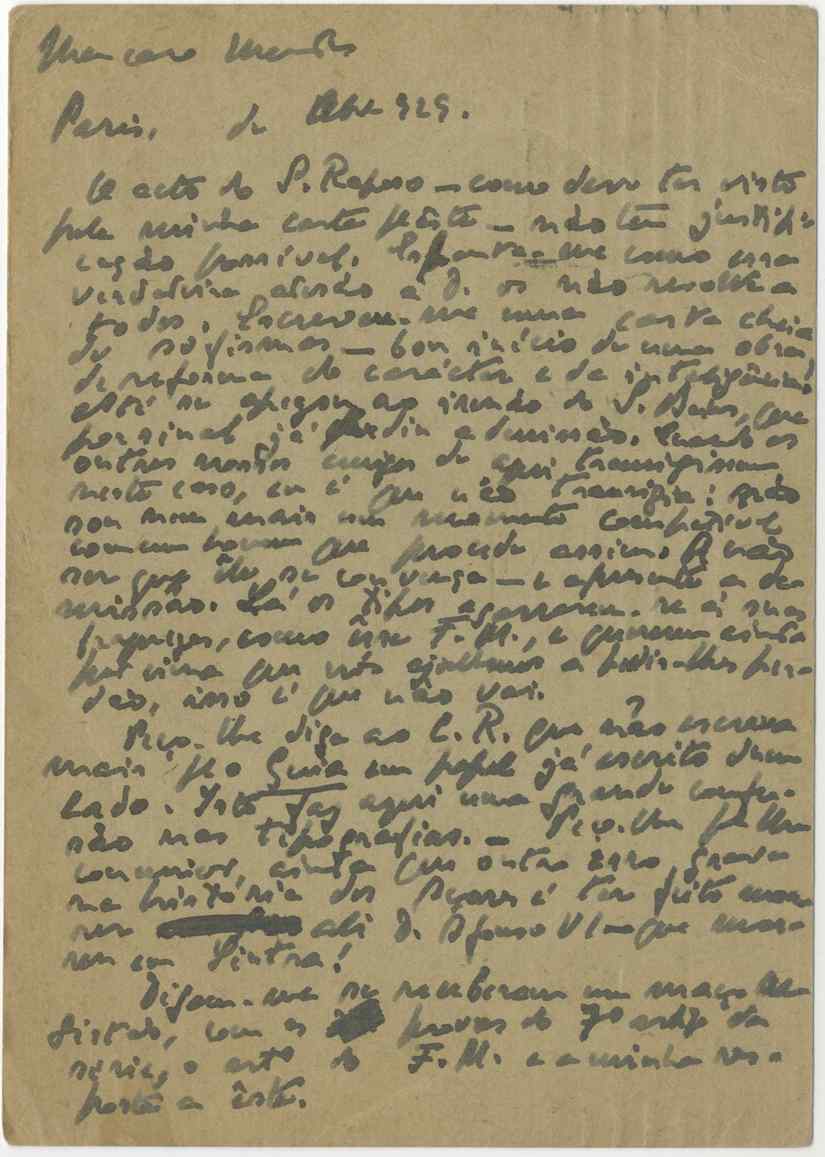 Meu caro Mendes
Paris, de Abr 929.
O acto do S. Raposo — como deve ter visto
pela minha carta p.ª este — não tem justifi-
cação possível. Espanta-me como essa
verdadeira alusão a D. os não revolta a
todos. Escreveu-me uma carta cheia
de sofismas — bom início de uma obra
de reforma do carácter e da inteligência!
até se apegou ao irmão do S. Bento, que
por sinal já pedia a demissão. Quando os
outros nossos amigos de aqui transigissem
neste caso, eu é que não transigia: não
sou nem mais um momento compatível
com um homem que procede assim. A não
ser que êle se convença — e apresente a de-
missão. Lá os tipos agarrarem-se às suas
fraquezas, como êsse F. M., e quererem ainda
por cima que nós ajoelhemos a pedir-lhes per-
dão, isso é que não vai.
Peço-lhe diga ao C. R. que não escreva
mais p.ª o Guia em papel já escrito dum
lado. Isto faz aqui uma grande confu-
são nas tipografias. — Peço-lhe p.ª lhe
comunicar, ainda que outro erro grave
na história dos Açores é ter feito mor-
rer ali D. Afonso VI — que mor-
reu em Sintra!
Digam-me se receberam um maço
com as provas do 7º artigo da
série, o artº do F. M. e a minha res-
posta a êste.